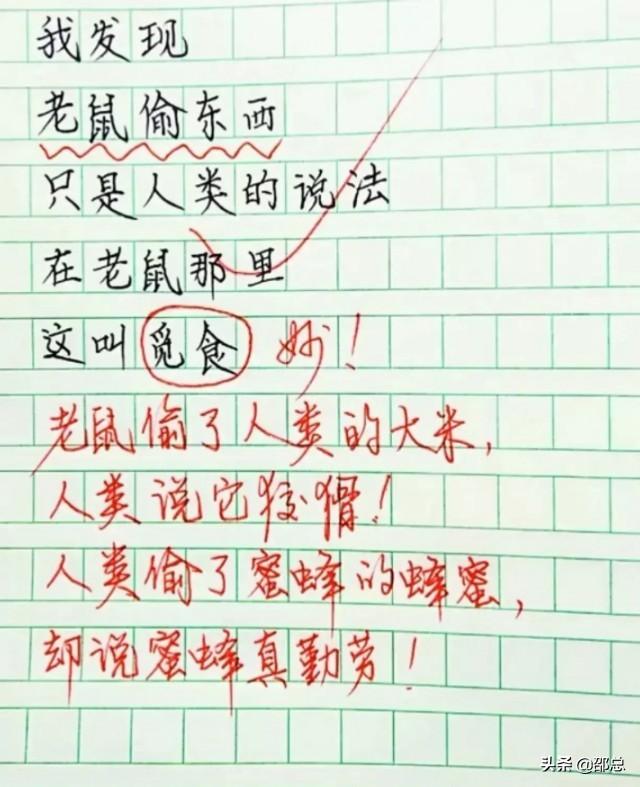 我发现
老鼠偷东西
只是人类的说法
在老鼠那里
这叫觅食 妙！
老鼠偷了人类的大米，
人类说它狡猾！
人类偷了蜜蜂的蜂蜜，
却说蜜蜂真勤劳！
头条 @邵总